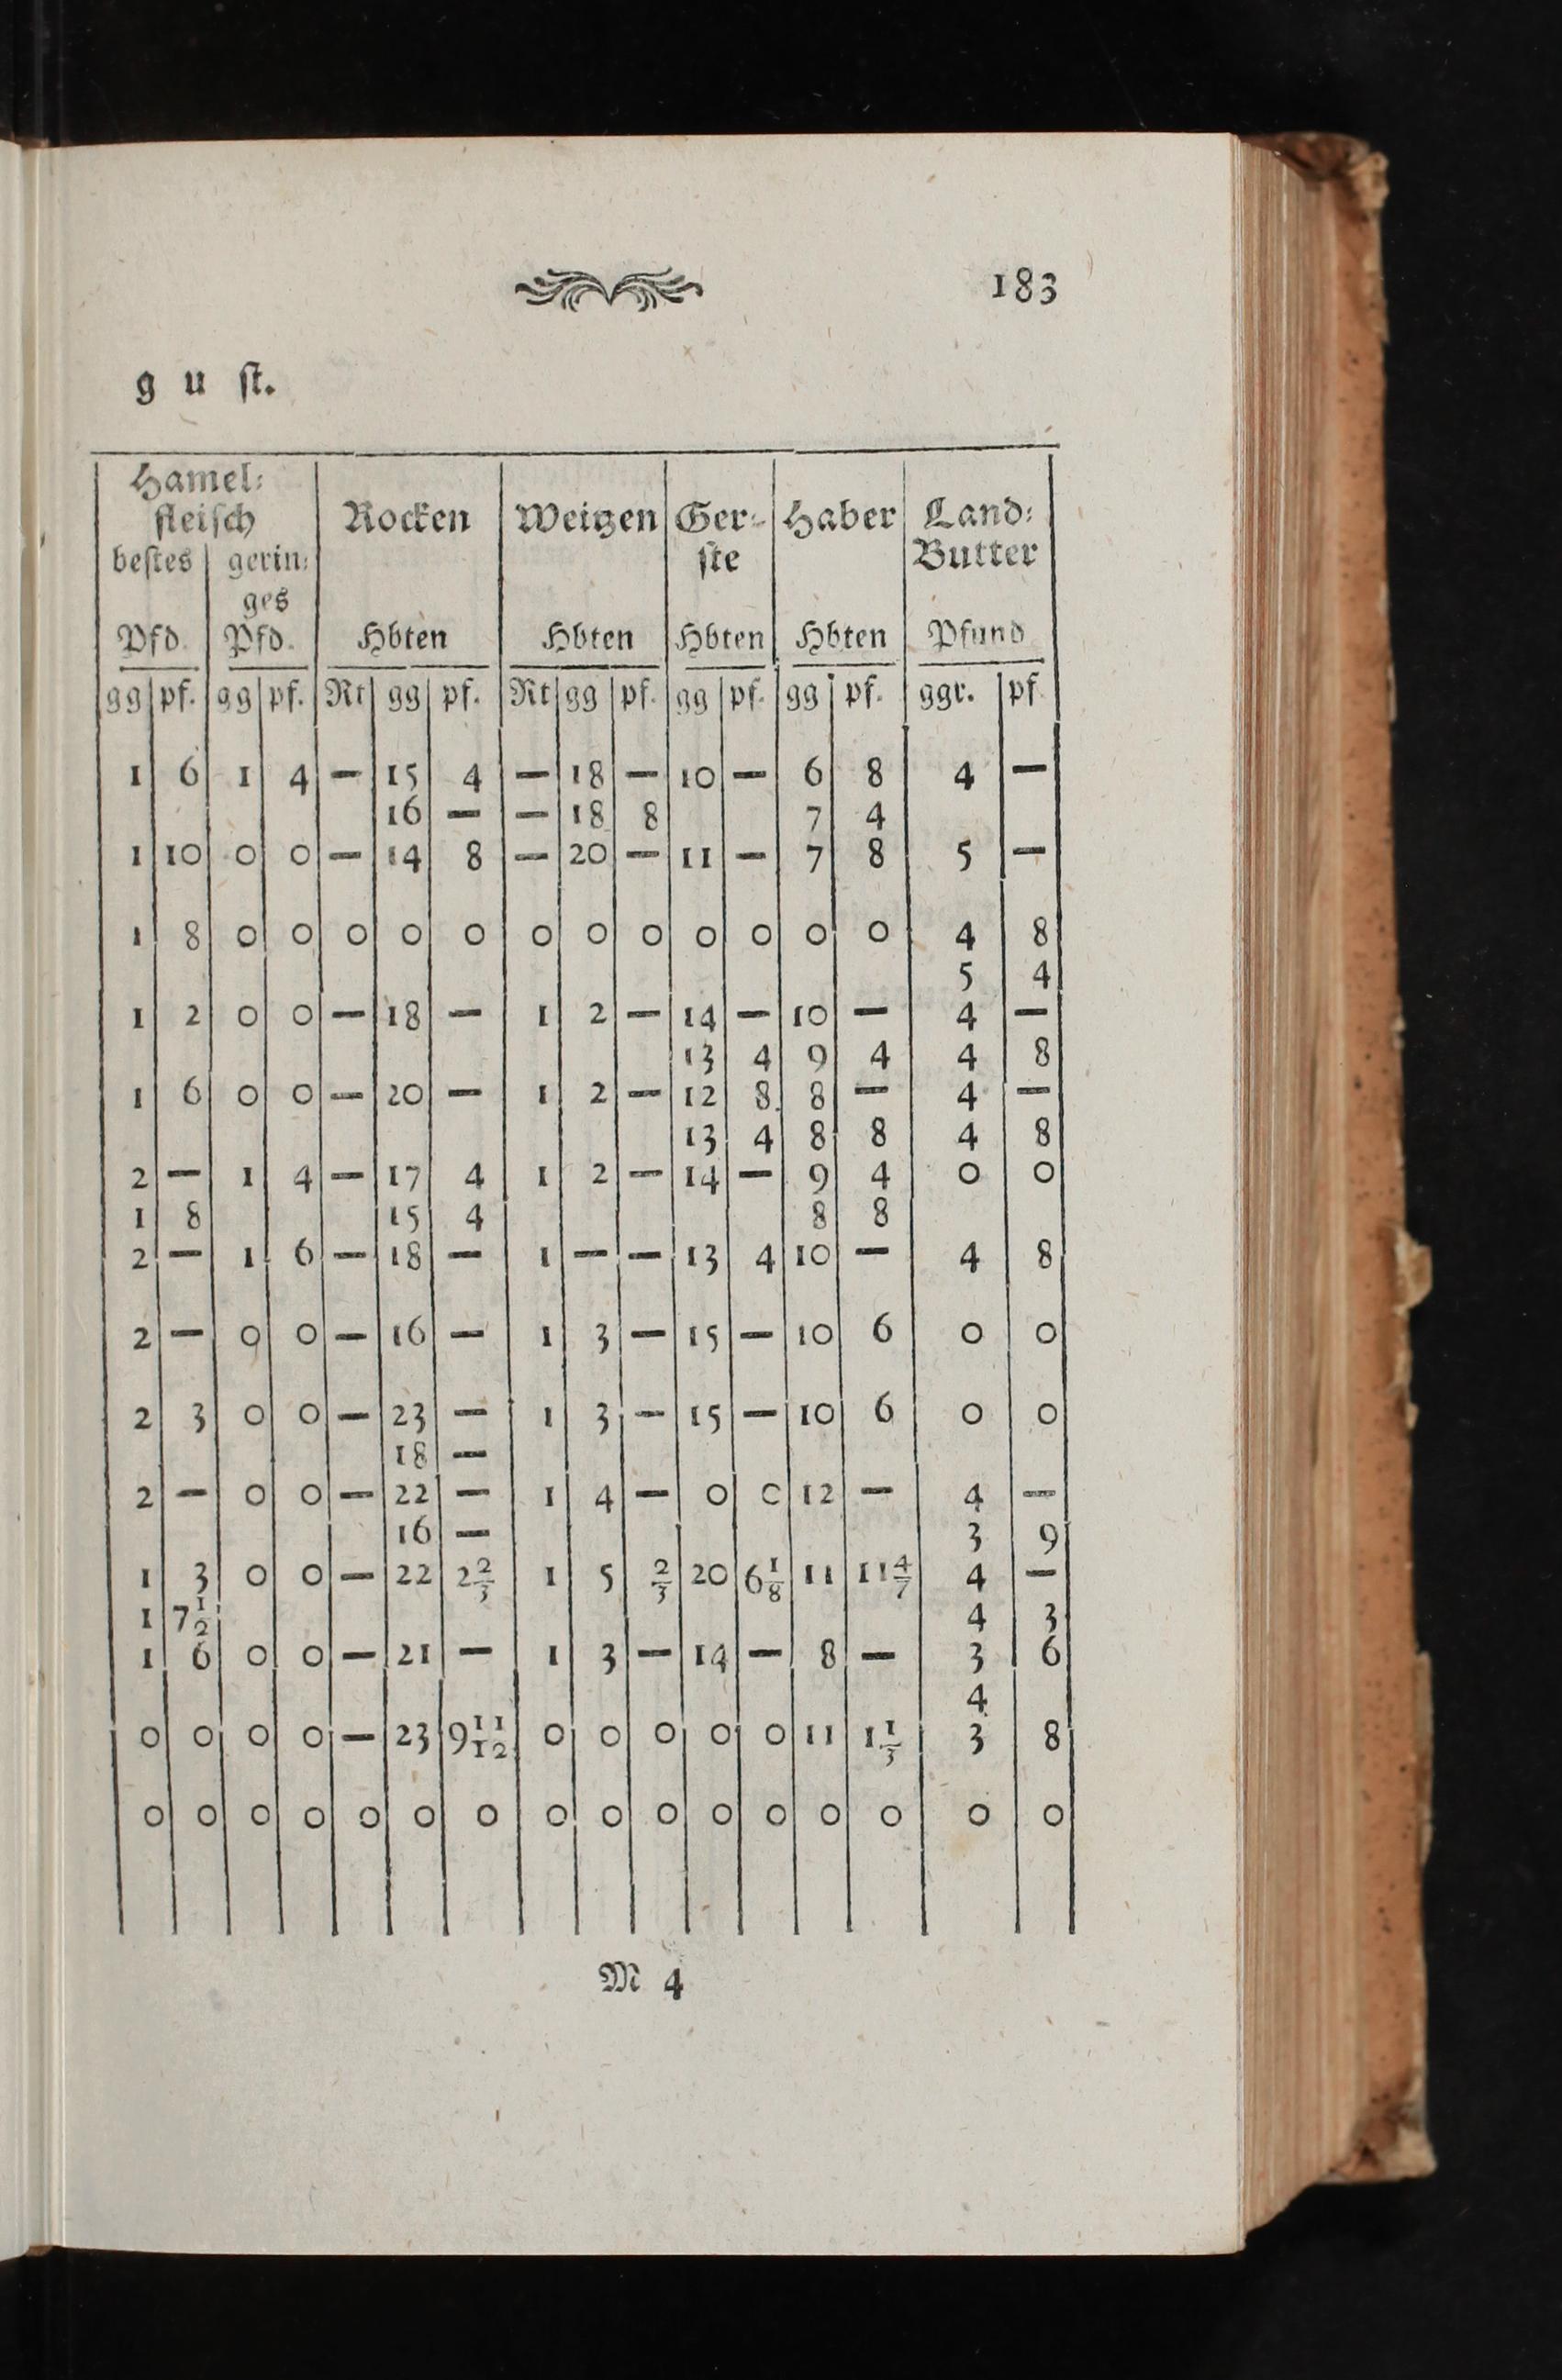 183
g u ſt.
Hamel⸗
fleiſch Rocken Weitzen Ger⸗ Haber Land⸗
beſtes gerin⸗ ſte Butter
ges
Pfd. Pfd. Hbten Hbten Hbten Hbten Pfund
gg pf. gg pf. Rt gg pf. Rt gg pf. gg pf. gg pf. ggr. pf
1 6 1 4 — 15 4 — 18 — 10 — 6 8 4 —
16 — — 18 8 7 4
1 10 0 0 — 14 8 — 20 — 11 — 7 8 5 —
1 8 0 0 0 0 0 0 0 0 0 0 0 0 4 8
5 4
1 2 0 0 — 18 — 1 2 — 14 — 10 — 4 —
13 4 9 4 4 8
1 6 0 0 — 20 — 1 2 — 12 8 8 — 4 —
13 4 8 8 4 8
2 — 1 4 — 17 4 1 2 — 14 — 9 4 0 0
1 8 15 4 8 8
2 — 1 6 — 18 — 1 — — 13 4 10 — 4 8
2 — 0 0 — 16 — 1 3 — 15 — 10 6 0 0
2 3 0 0 — 23 — 1 3 — 15 — 10 6 0 0
18 —
2 — 0 0 — 22 — 1 4 — 0 0 12 — 4 —
16 — 3 9
1 3 0 0 — 22 2 2/3 1 5 2/3 20 6 1/8 11 11 4/7 4 —
1 7 1/2 4 3
1 6 0 0 — 21 — 1 3 — 14 — 8 — 3 6
4
0 0 0 0 — 23 9 11/12 0 0 0 0 0 11 1 1/3 3 8
0 0 0 0 0 0 0 0 0 0 0 0 0 0 0 0
M 4